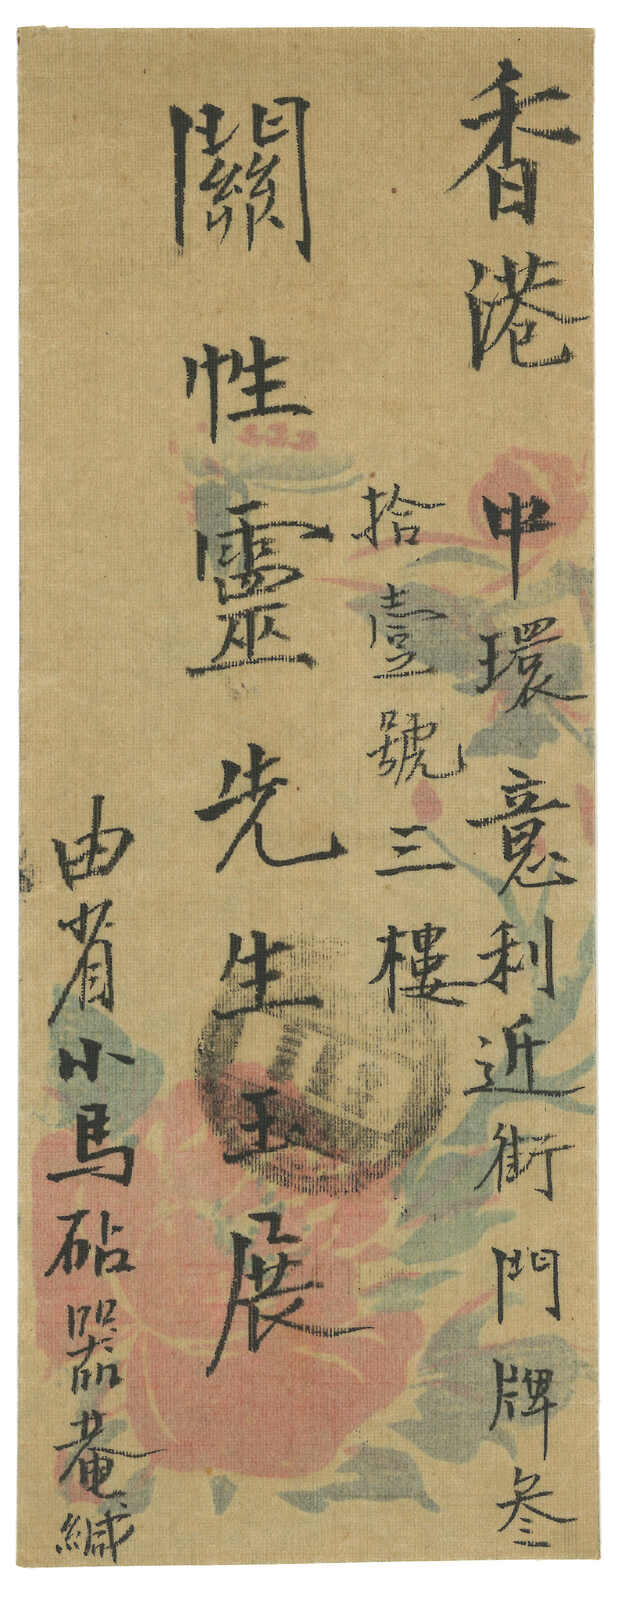 香港
中環意利近街門牌叁
拾壹號三樓
關性靈先生玉展
由省小馬砧器菴緘